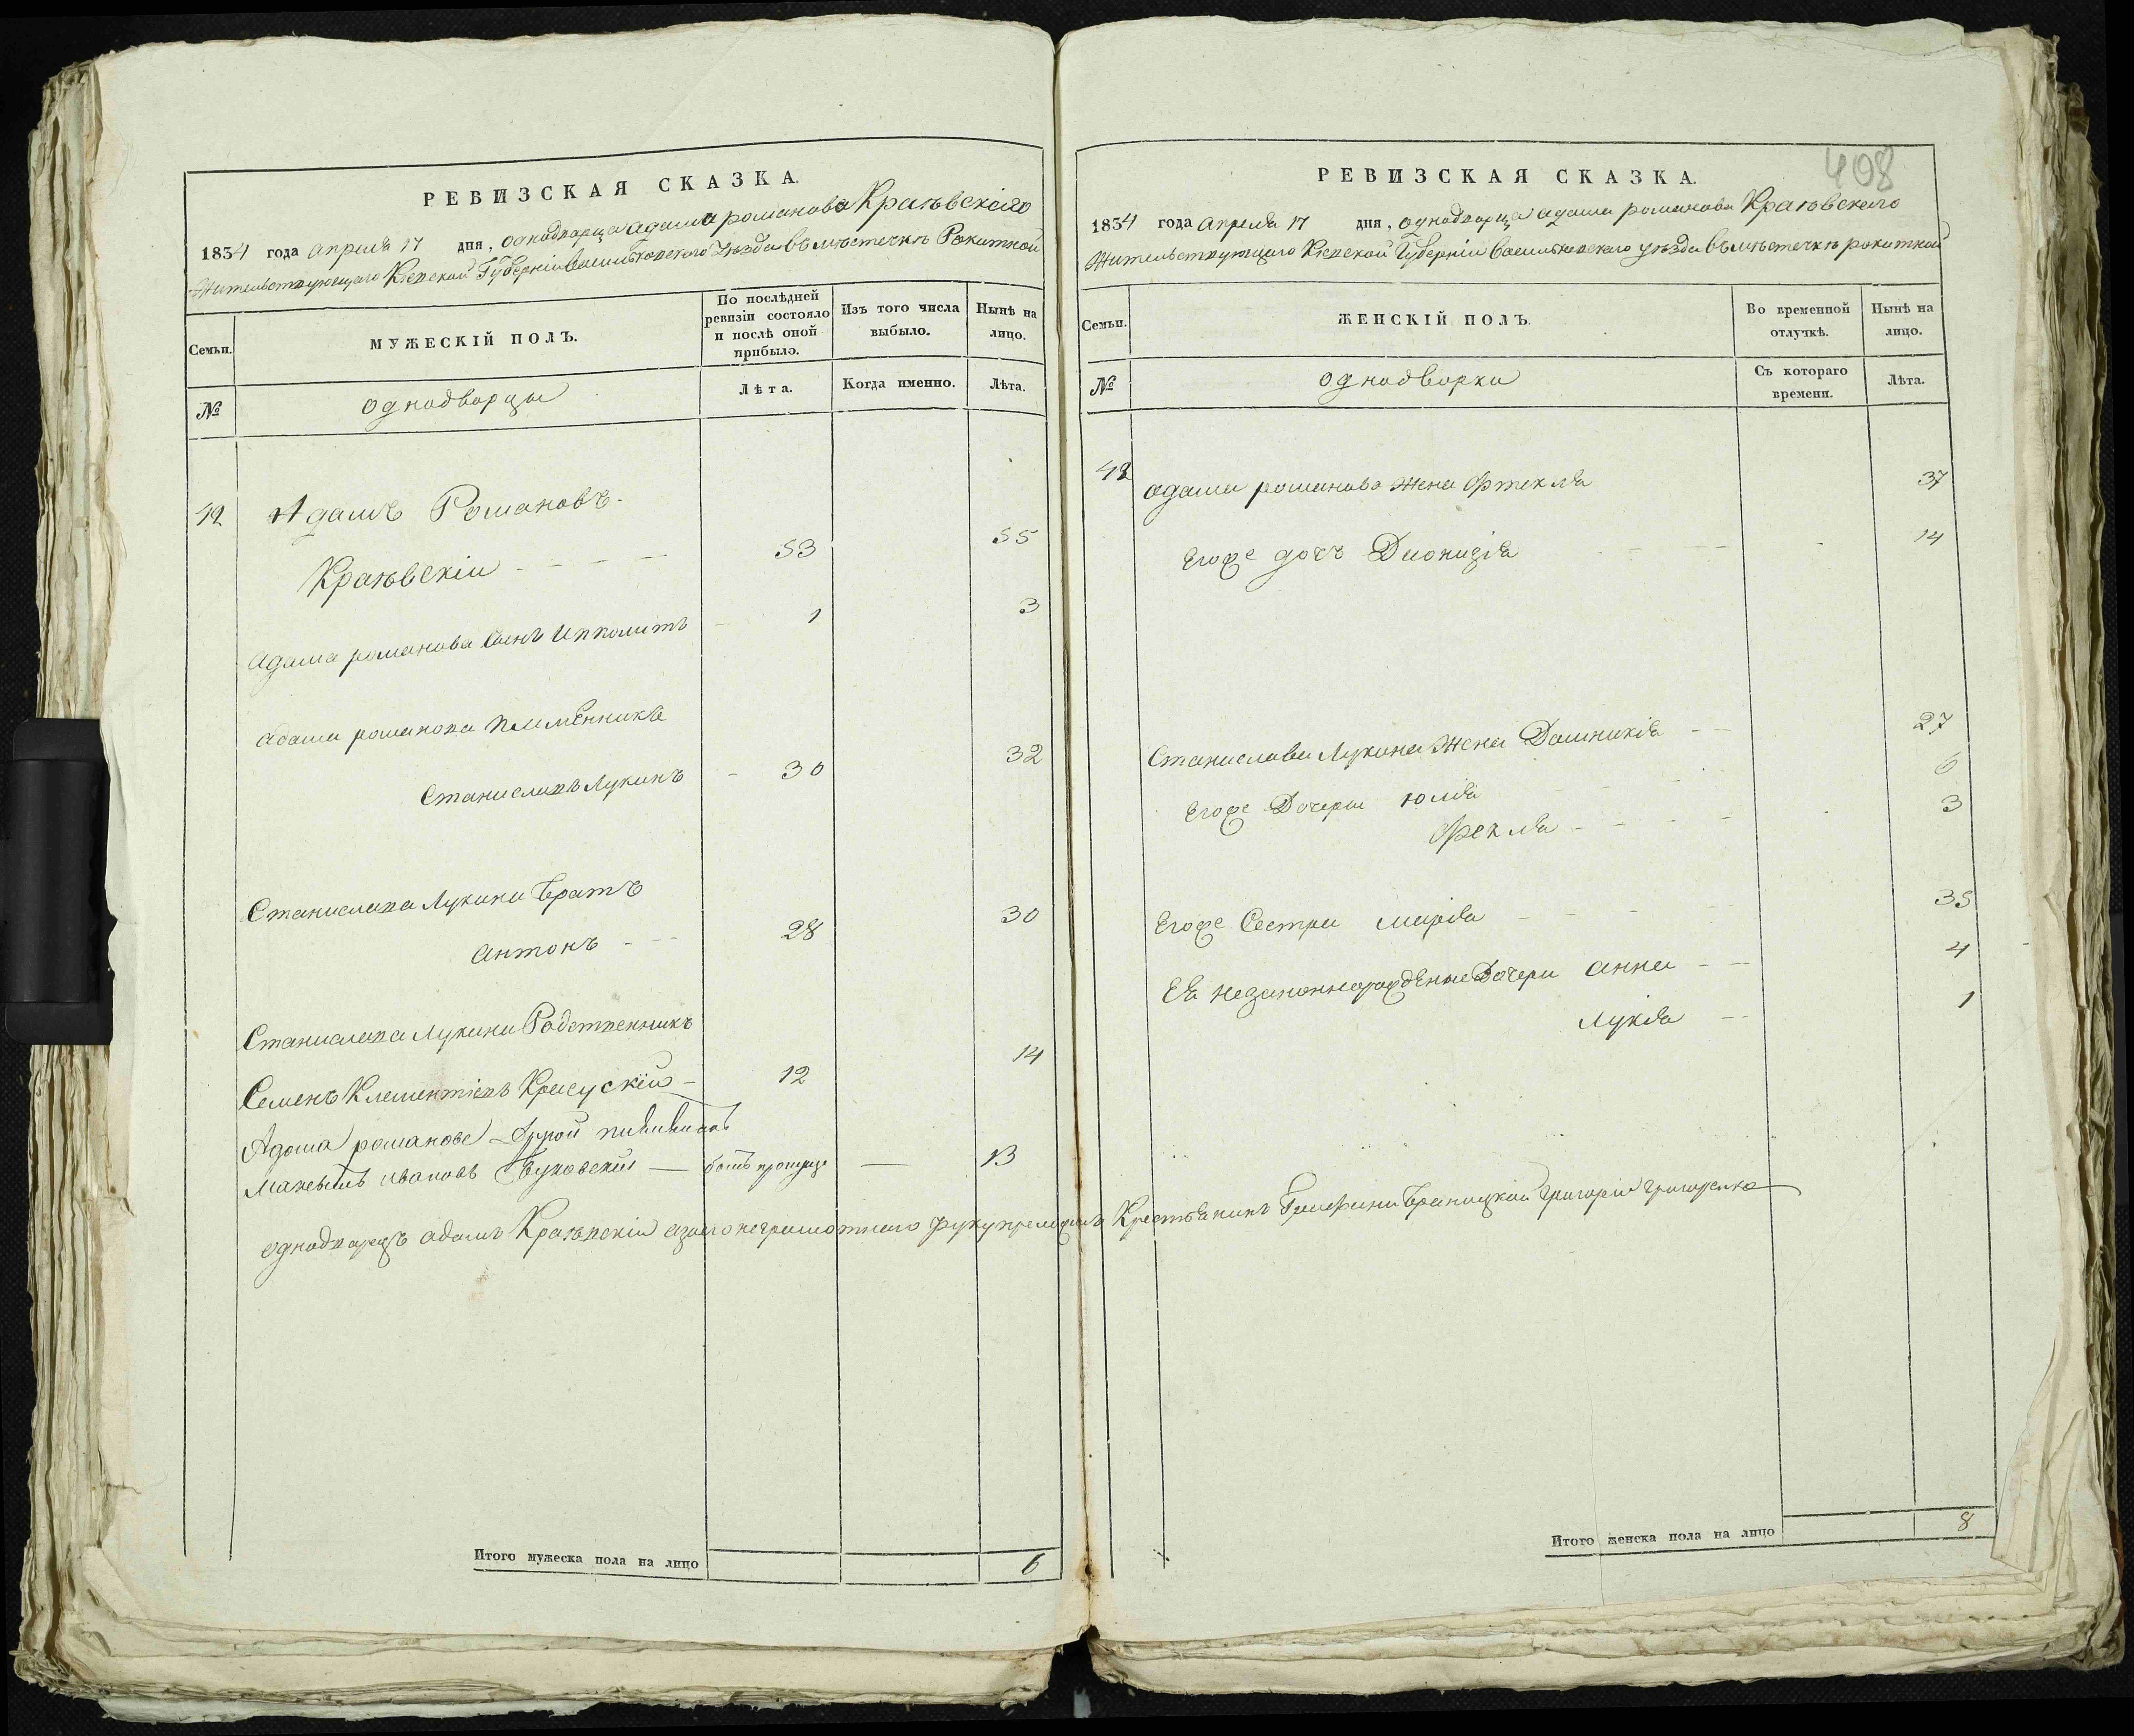 РЕВИЗСКАЯ СКАЗКА.
1834 года апреля 17 дня, однодворца адама романова Краѣвского
Жительствующаго Кіевской Губерніи Васильковского Уѣзда въ мѣстечкѣ Рокитной
Семьи.
МУЖЕСКІЙ ПОЛЪ.
По послѣдней ревизіи состояло и послѣ оной прибыло.
Изъ того числа выбыло.
Нынѣ на лицо.
№
однодворцы
Лѣта.
Когда именно.
Лѣта.
42 Адамъ Романовъ
Краѣвскіи 53 55
Адама романова Сынъ Ипполитъ 1 3
Адама романова племенникъ
Станиславъ Лукинъ 30 32
Станислава Лукина братъ
антонъ 28 30
Станислава Лукина Родственникъ
Семенъ Клементіевъ Красускій 12 14
Адама романова другой
ивановъ Буковскій 13
однодворецъ адамъ Краѣвскіи
Итого мужеска пола на лицо 6
408
РЕВИЗСКАЯ СКАЗКА.
1834 года апреля 17 дня, однодворца адама романова Краѣвского
Жительствующаго Кіевской Губерніи Васильковского уѣзда въ мѣстечкѣ рокитной
Семьи.
ЖЕНСКІЙ ПОЛЪ.
Во временной отлучкѣ.
Нынѣ на лицо.
№
однодворки
Съ котораго времени.
Лѣта.
42 адама романова жена 37
Егоже дочь Дионизія 14
Станислава Лукина жена Домникія 27
Егоже Дочери юлія 6
Фекля 3
Егоже Сестра марія 35
Ея незаконнорожденые Дочери анна 4
лукія 1
Крестьянинъ Графини Браницкой григорій
Итого женска пола на лицо 8